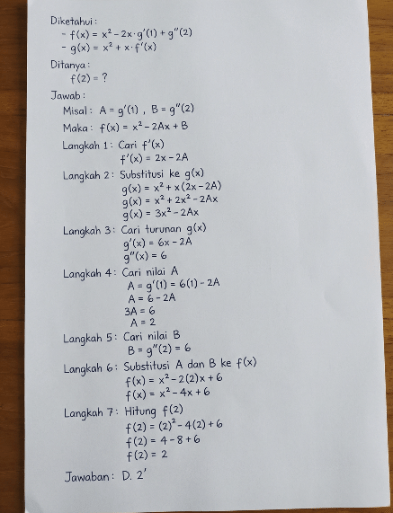 Diketahui:
- f(x) = x² - 2x·g'(1) + g''(2)
- g(x) = x² + x·f'(x)
Ditanya:
f(2) = ?
Jawab:
Misal: A = g'(1), B = g''(2)
Maka: f(x) = x² - 2Ax + B
Langkah 1: Cari f'(x)
f'(x) = 2x - 2A
Langkah 2: Substitusi ke g(x)
g(x) = x² + x(2x - 2A)
g(x) = x² + 2x² - 2Ax
g(x) = 3x² - 2Ax
Langkah 3: Cari turunan g(x)
g'(x) = 6x - 2A
g''(x) = 6
Langkah 4: Cari nilai A
A = g'(1) = 6(1) - 2A
A = 6 - 2A
3A = 6
A = 2
Langkah 5: Cari nilai B
B = g''(2) = 6
Langkah 6: Substitusi A dan B ke f(x)
f(x) = x² - 2(2)x + 6
f(x) = x² - 4x + 6
Langkah 7: Hitung f(2)
f(2) = (2)² - 4(2) + 6
f(2) = 4 - 8 + 6
f(2) = 2
Jawaban: D. 2'